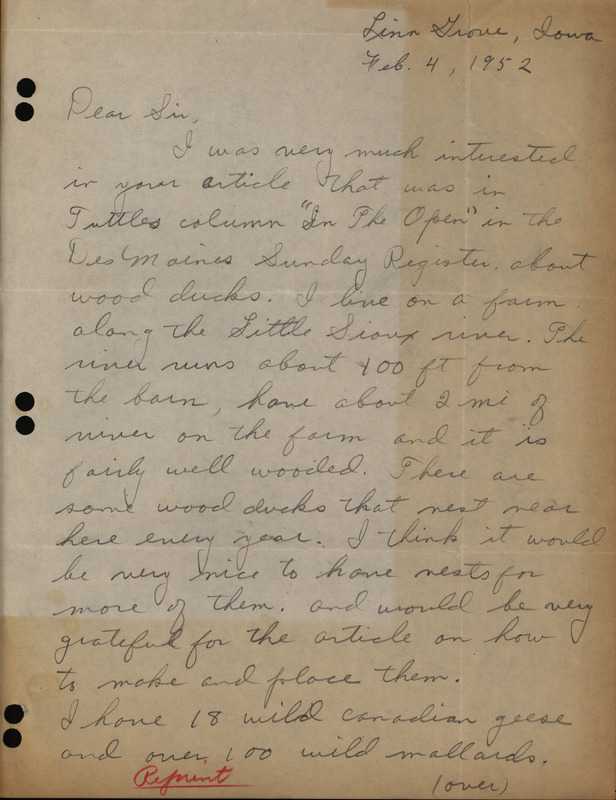 Linn Grove, Iowa
Feb. 4, 1952
Dear Sir,
I was very much interested
in your article that was in
Tuttles column "In The Open" in the
Des Moines Sunday Register. about
wood ducks. I live on a farm
along the Little Sioux river. The
river runs about 100 ft from
the barn, have about 2 mi of
river on the farm and it is
fairly well wooded. There are
some wood ducks that nest near
here every year. I think it would
be very nice to have nests for
more of them. and would be very
grateful for the article on how
to make and place them.
I have 18 wild canadian geese
and over 100 wild mallards.
Reprint
(over)